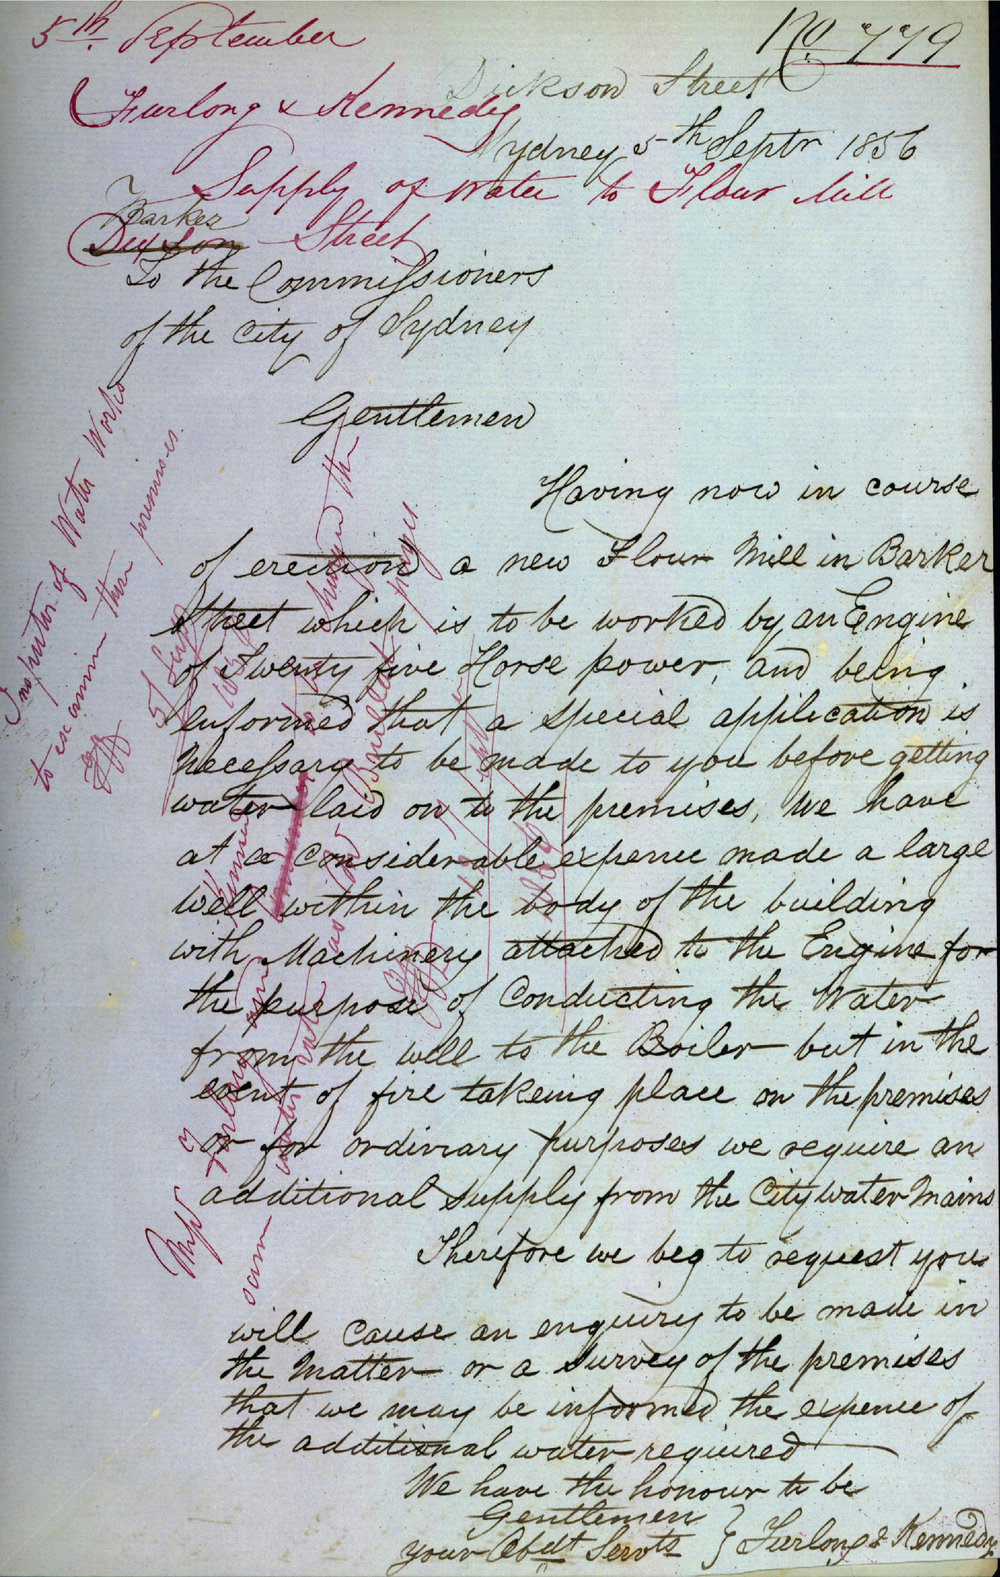 5th. September
No. 779
Dickson Street
Furlong & Kennedy
Sydney 5th Septr 1856
Supply of Water to Flour Mill
Barker
Dixson Street
To the Commissioners
of the City of Sydney
Gentlemen
Having now in course
of erection a new Flour Mill in Barker
Street which is to be worked by an Engine
of Twenty five Horse power, and being
enformed that a special application is
Necessary to be made to you before getting
water laid on to the premises, We have
at a considerable expence made a large
Well within the body of the building
with Machinery attached to the Engine for
the purpose of Conducting the Water
from the well to the Boiler but in the
event of fire takeing place on the premises
or for ordinary purposes we require an
additional supply from the City water Mains
Therefore we beg to request you
will cause an enquiry to be made in
the Matter or a Survey of the premises
that we may be informed the expence of
the additional water required
We have the honour to be
Gentlemen
your Obdt Servts } Furlong & Kennedy
Inspector of Water Works
to examine these premises.
5 Sep
Furlong and
to be charged the
same water rate as